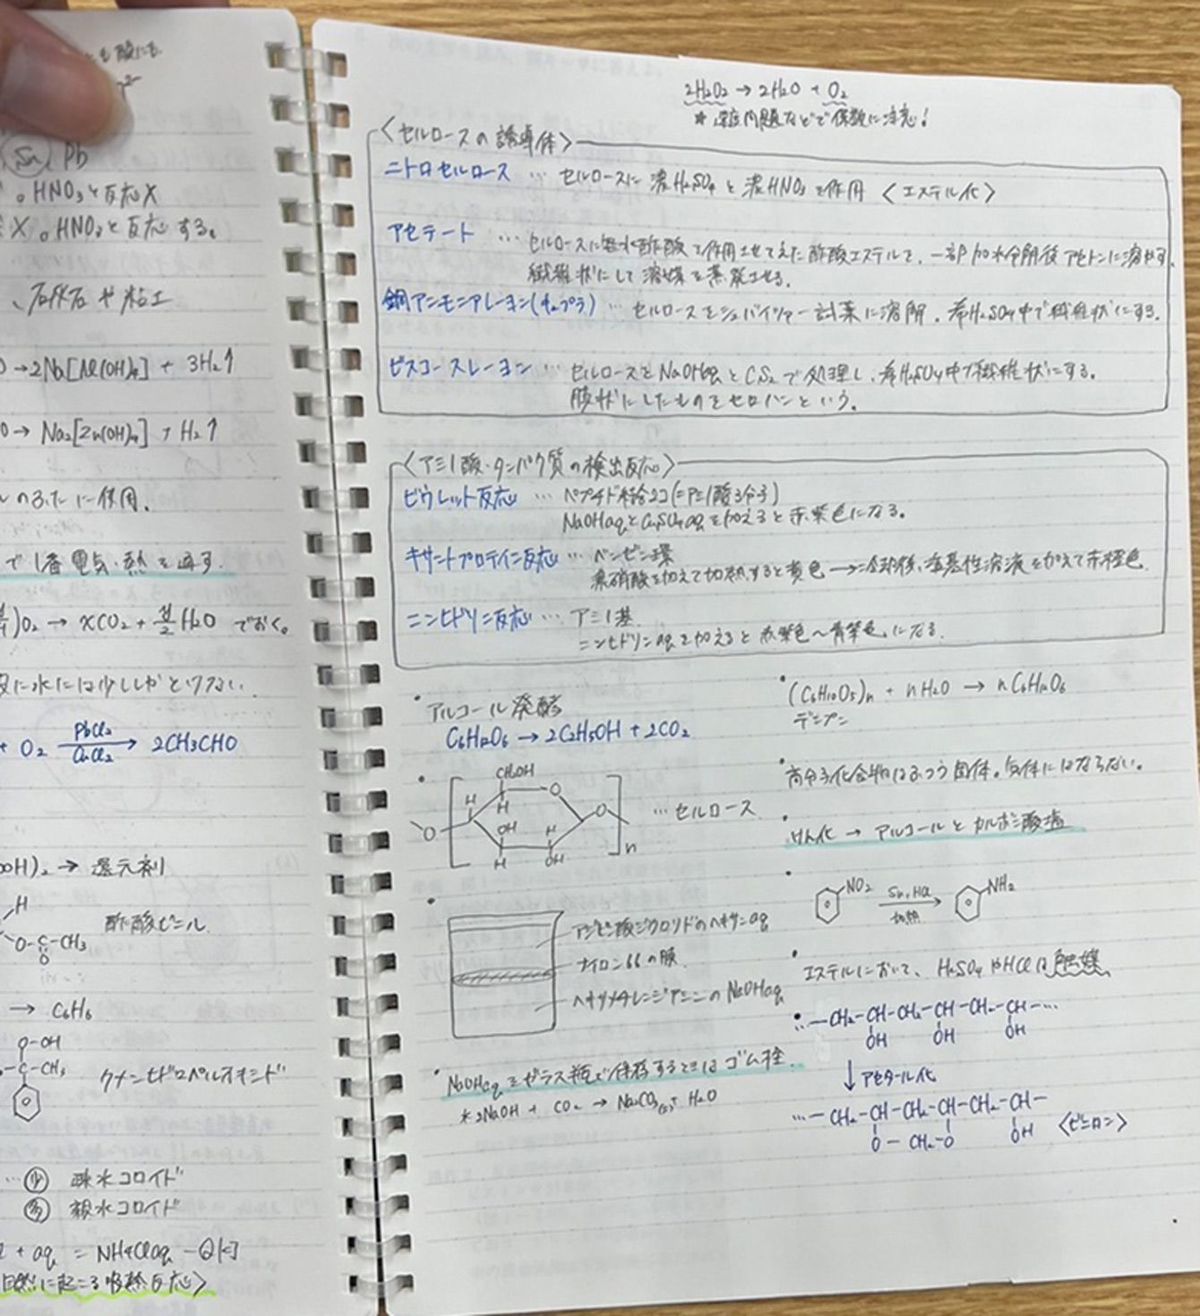 も酸にも
2-
Sn Pb
。HNO3と反応X
X。HNO3と反応する。
、石灰石や粘土
→2Na[Al(OH)4] + 3H2↑
→ Na2[Zn(OH)4] + H2↑
のふたに使用。
で1番電気・熱を通す。
)O2 → xCO2 + y/2 H2O でおく。
に水には少ししかとけない。
+ O2 PdCl2 CuCl2 → 2CH3CHO
OH)2 → 還元剤
H
O-C-CH3
O
酢酸ビニル
→ C6H6
O-OH
C-CH3
クメンヒドロペルオキシド
少 疎水コロイド
多 親水コロイド
+ aq = NH4Claq - Q kJ
自然に起こる吸熱反応〉
2H2O2 → 2H2O + O2
* 問題などで係数に注意!
〈セルロースの誘導体〉
ニトロセルロース … セルロースに濃H2SO4と濃HNO3を作用 〈エステル化〉
アセテート … セルロースに無水酢酸を作用させてえた酢酸エステルを、一部加水分解後アセトンに溶かす。
繊維状にして溶媒を蒸発させる。
銅アンモニアレーヨン(キュプラ) … セルロースをシュバイツァー試薬に溶解、希H2SO4中で繊維状にする。
ビスコースレーヨン … セルロースをNaOHaqとCS2で処理し、希H2SO4中で繊維状にする。
膜状にしたものをセロハンという。
〈アミノ酸・タンパク質の検出反応〉
ビウレット反応 … ペプチド結合2コ(=アミノ酸3分子)
NaOHaqとCuSO4aqを加えると赤紫色になる。
キサントプロテイン反応 … ベンゼン環
濃硝酸を加えて加熱すると黄色 → 冷却後、塩基性溶液を加えて赤橙色
ニンヒドリン反応 … アミノ基
ニンヒドリンaqを加えると赤紫色〜青紫色になる。
・アルコール発酵
C6H12O6 → 2C2H5OH + 2CO2
・(C6H10O5)n + nH2O → nC6H12O6
デンプン
・高分子化合物はふつう固体。気体にはならない。
・けん化 → アルコールとカルボン酸塩
CH2OH
H O
H
O OH H O
H OH n
… セルロース
・NO2 Sn, HCl 加熱 → NH2
・アジピン酸ジクロリドのヘキサンaq
ナイロン66の膜
ヘキサメチレンジアミンのNaOHaq
・エステルにおいて、H2SO4やHClは触媒
・…-CH2-CH-CH2-CH-CH2-CH-…
OH OH OH
↓アセタール化
…-CH2-CH-CH2-CH-CH2-CH-
O-CH2-O OH 〈ビニロン〉
・NaOHaqをガラス瓶で保存するときはゴム栓
* 2NaOH + CO2 → Na2CO3 + H2O